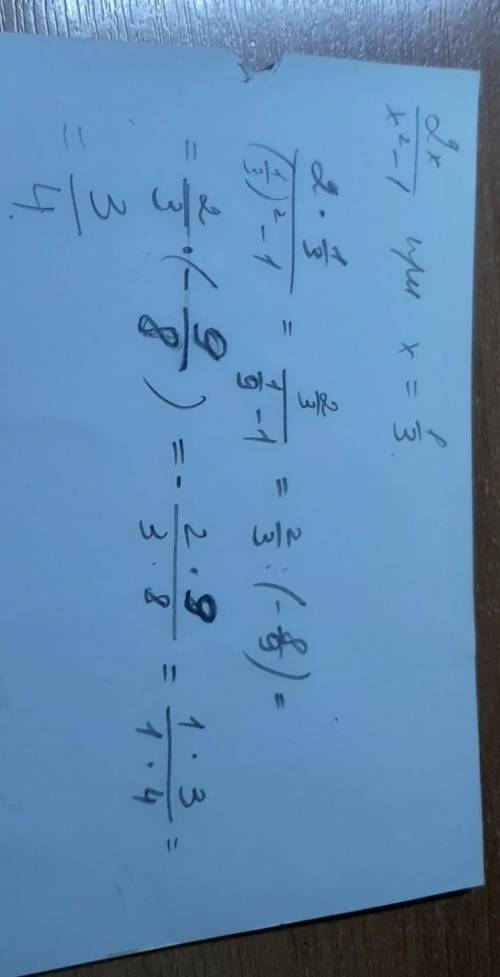 2x / x² - 1 при x = 1/3.
2 · 1/3 / (1/3)² - 1 = 2/3 / 1/9 - 1 = 2/3 : (- 8/9) =
= 2/3 · (- 9/8) = - 2 · 9 / 3 · 8 = 1 · 3 / 1 · 4 =
= 3 / 4.